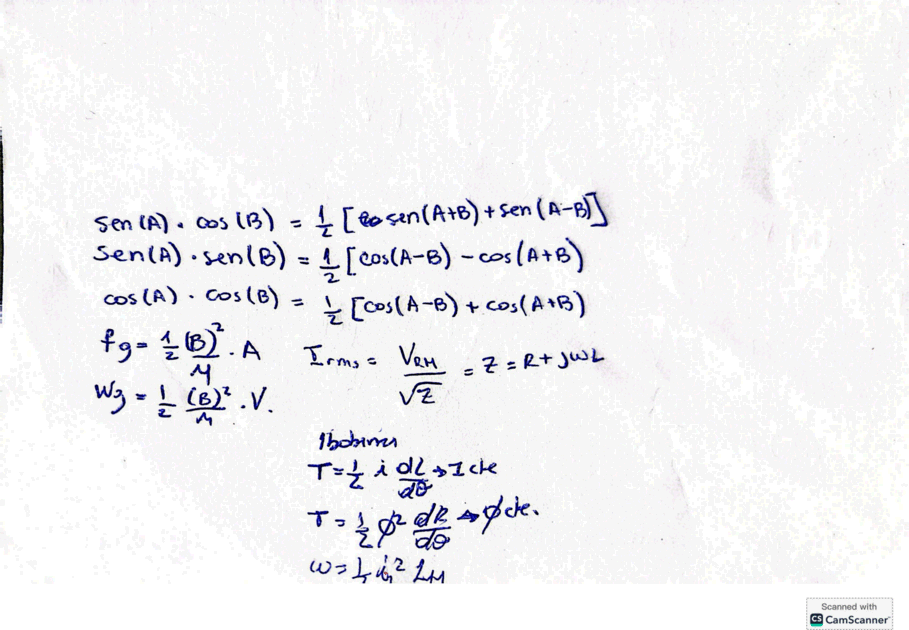 sen(A) . cos(B) = 1/2 [sen(A+B) + sen(A-B)]
Sen(A) . sen(B) = 1/2 [cos(A-B) - cos(A+B)
cos(A) . cos(B) = 1/2 [cos(A-B) + cos(A+B)
fg = 1/2 (B)²/μ . A
Irms = VRM/√Z = Z = R + jωL
Wg = 1/2 (B)²/μ . V.
1 bobina
T = 1/2 i dL/dθ → I cte
T = 1/2 φ² dR/dθ → φ cte.
Scanned with
CS CamScanner